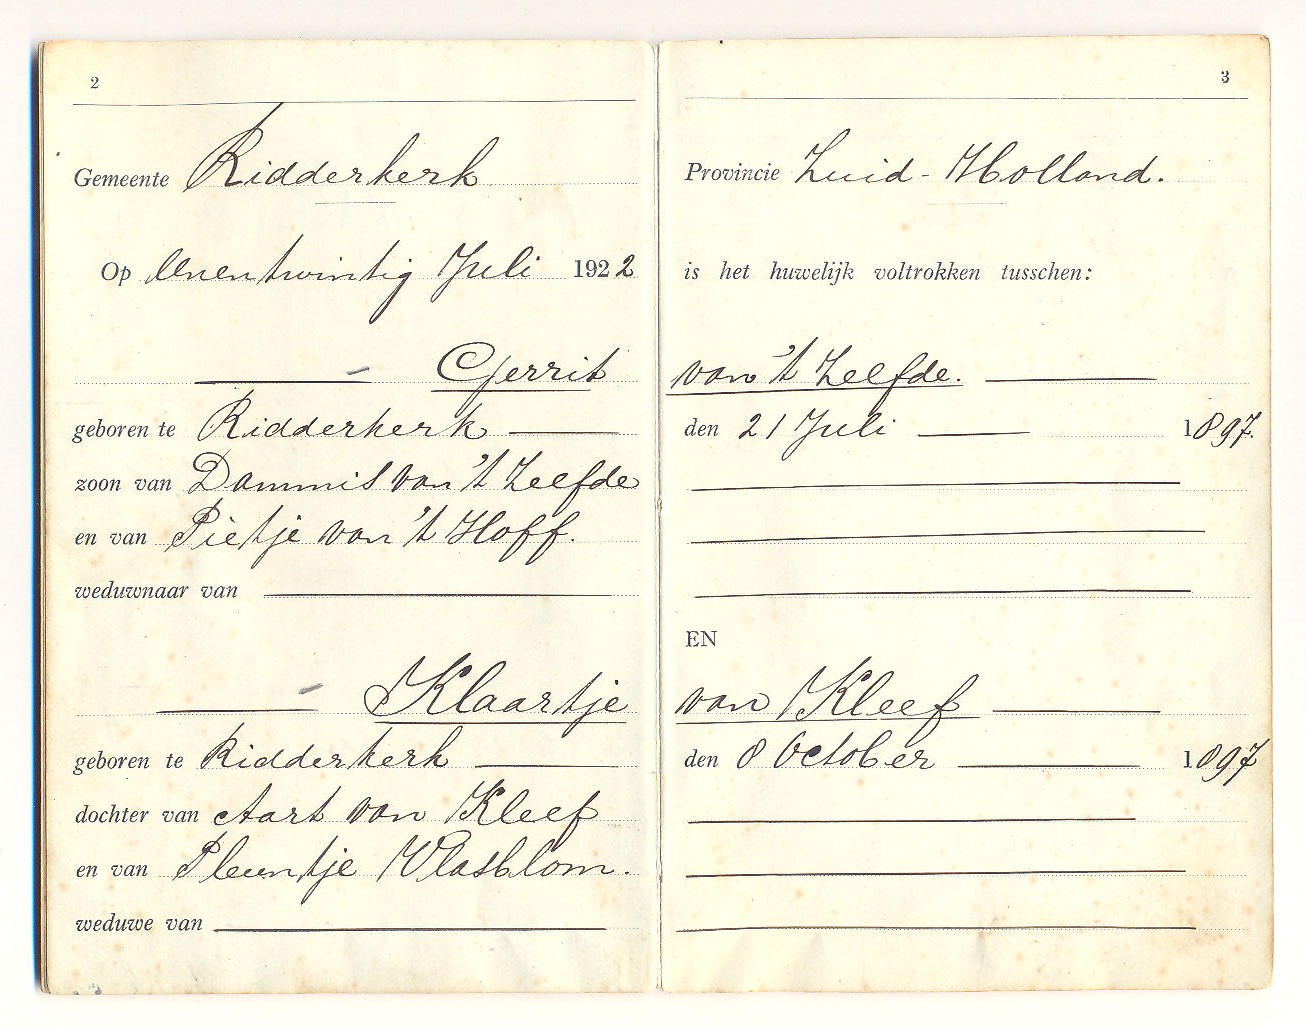 2
Gemeente Ridderkerk
Op Eenentwintig Juli 1922
Gerrit
geboren te Ridderkerk
zoon van Dammis van 't Zelfde
en van Pietje van 't Hoff.
weduwnaar van
Klaartje
geboren te Ridderkerk
dochter van Aart van Kleef
en van Pleuntje Vlasblom.
weduwe van
3
Provincie Zuid-Holland.
is het huwelijk voltrokken tusschen:
van 't Zelfde.
den 21 Juli 1897.
EN
van Kleef
den 8 October 1897